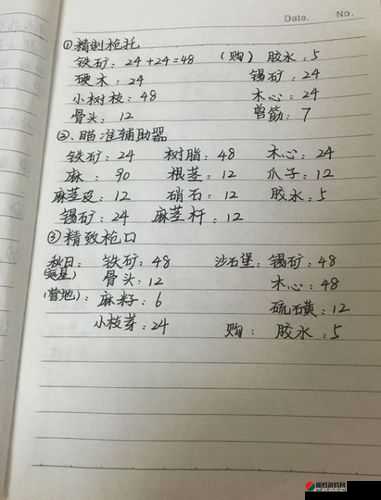 Data. No.
①精制枪托
铁矿：24+24=48 （购）胶水：5
硬木：24 锡矿：24
小树枝：48 木心：24
骨头：12 兽筋：7
②瞄准辅助器
铁矿：24 树脂：48 木心：24
麻：90 根茎：12 爪子：12
麻茎皮：12 硝石：12 胶水：5
锡矿：24 麻茎杆：12
③精致枪口
秋日：铁矿：48 沙石堡：锡矿：48
骨头：12 木心：48
(营地)：麻籽：6 硫磺：12
小枝芽：24 购：胶水：5